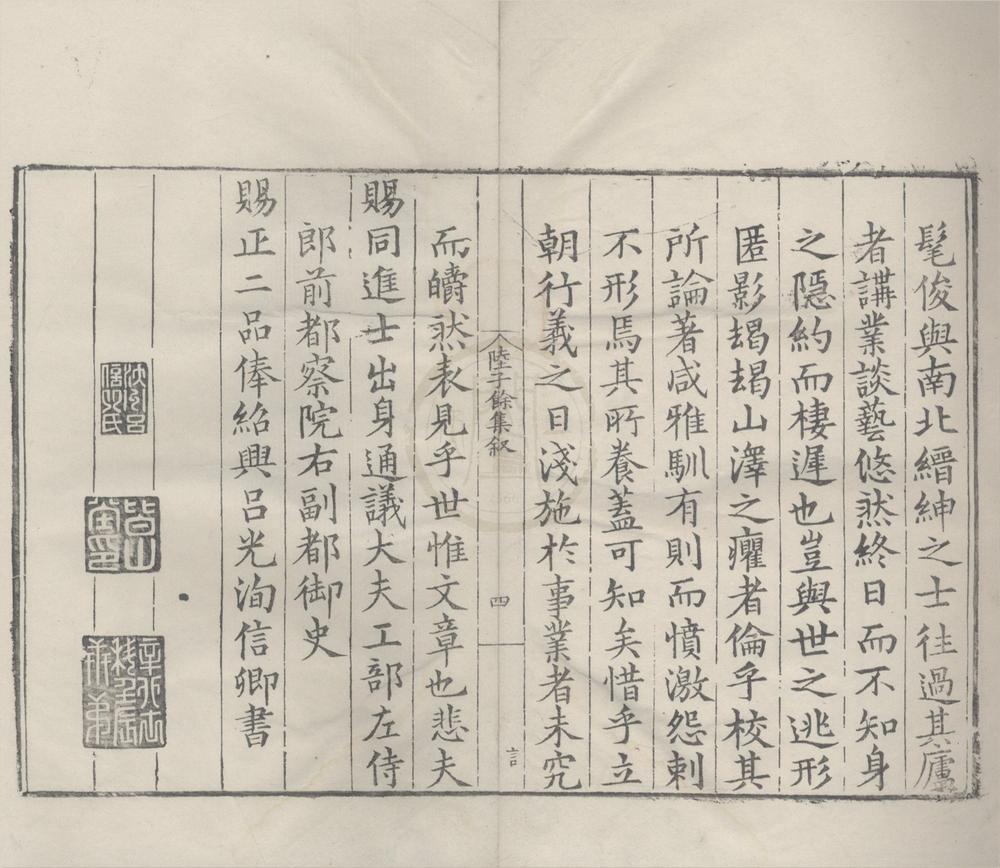 髦俊與南北縉紳之士往過其廬
者講業談藝悠然終日而不知身
之隱約而棲遲也豈與世之逃形
匿影朅朅山澤之癯者倫乎校其
所論著咸雅馴有則而憤激怨刺
不形焉其所養蓋可知矣惜乎立
朝行義之日淺施於事業者未究
陸子餘集叙
四
言
而皭然表見乎世惟文章也悲夫
賜同進士出身通議大夫工部左侍
郎前都察院右副都御史
賜正二品俸紹興呂光洵信卿書